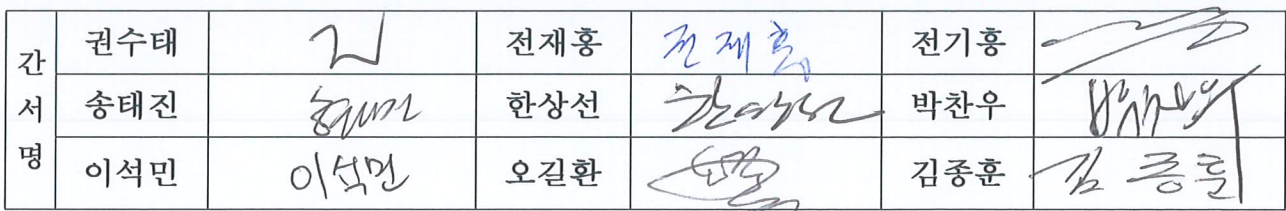 간서명
권수태 전재홍 전재홍 전기흥
송태진 한상선 박찬우
이석민 이석민 오길환 김종훈 김종훈